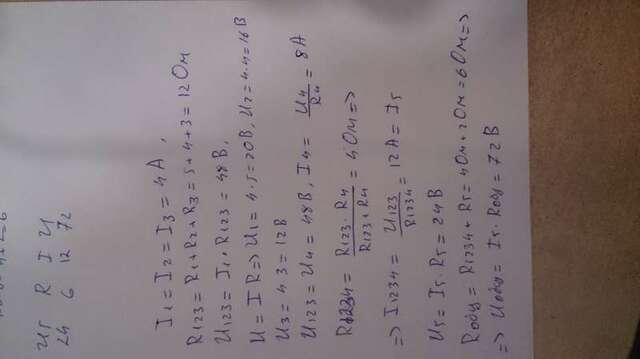 U5 R I U
24 6 12 72
I1 = I2 = I3 = 4A,
R123 = R1 + R2 + R3 = 5 + 4 + 3 = 12 Ом
U123 = I1 · R123 = 48В,
U = IR => U1 = 4·5 = 20В, U2 = 4·4 = 16В
U3 = 4·3 = 12В
U123 = U4 = 48В, I4 = U4/R4 = 8А
R1234 = R123·R4/R123+R4 = 4 Ом =>
=> I1234 = U123/R1234 = 12А = I5
U5 = I5·R5 = 24В
Rобщ = R1234 + R5 = 4Ом + 2Ом = 6Ом =>
=> Uобщ = I5·Rобщ = 72В